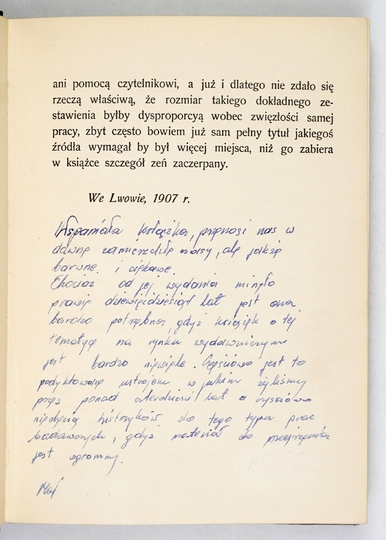 ani pomocą czytelnikowi, a już i dlatego nie zdało się
rzeczą właściwą, że rozmiar takiego dokładnego ze-
stawienia byłby dysproporcyą wobec zwięzłości samej
pracy, zbyt często bowiem już sam pełny tytuł jakiegoś
źródła wymagał by był więcej miejsca, niż go zabiera
w książce szczegół zeń zaczerpany.
We Lwowie, 1907 r.
Wspaniała książka, przenosi nas w
dawne zamierzchłe czasy, ale jakże
barwne i ciekawe.
Chociaż od jej wydania minęło
prawie dziewięćdziesiąt lat jest ona
bardzo potrzebna, gdyż książek o tej
tematyce na rynku wydawniczym
jest bardzo niewiele. Częściowo jest to
podyktowane ustrojem w jakim żyliśmy
przez ponad czterdzieści lat a częściowo
niechęcią historyków do tego typu prac
badawczych, gdyż materiał do przejrzenia
jest ogromny.